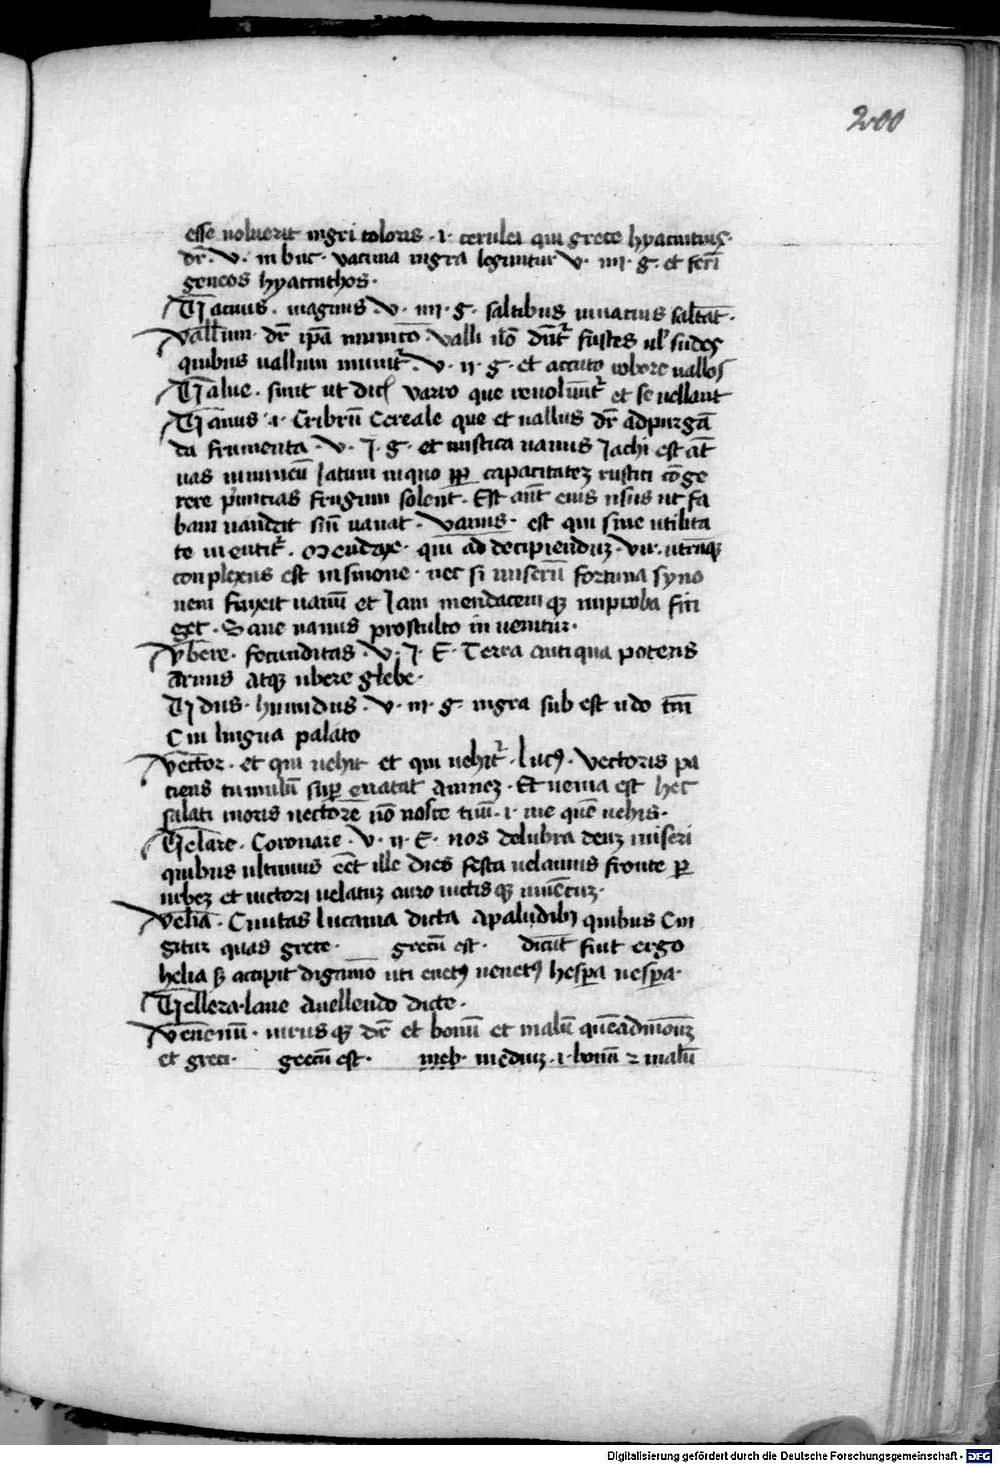 200
esse voluerit nigri coloris · i · cerulei qui grece hyacintius ·
dr̄ · V · in buc · vacinia nigra leguntur V · iiij · g · et ferri
gineos hyacinthos ·
Vacuus · magnus · V · iiij · g · saltibus in vacuis saltat̄ ·
Vallum · dr̄ ip̄a municō · Valli ṽo dn̄tr fustes ul sudes
quibus uallum munitr · V · ij · g · et accuto robore uallos
Value · sunt ut dicit varro que revolūntr et se uellant
Vanus · i · Cribrū Cereale que et uallus dr̄ ad purgā
da frumenta · V · J · g · et mistica uanus Jachi est at̄
uas uimineū latum in quo ꝓꝑ capacitateꝫ rustici cōge
rere p̄mitias frugum solent · Est aūt eius usus ut fa
bam uandat sint̄ uanat · Vanus · est qui sine utilita
te mentitr · Mendax · qui ad decipienduꝫ · Vir · utrūqꝫ
conplexus est in sinone · nec si miserū fortuna syno
nem finxit uanū et Jam mendacem qꝫ improba fin
get · Sane uanus pro stulto in uenitur ·
Vbere · fecunditas · V · J · E · Terra antiqua potens
armis atqꝫ ubere glebe ·
Vdus · humidus · V · iij · g · nigra sub est udo tm̄
Cui lingua palato
Vector · et qui uehit et qui uehitr · lucꝰ · Vectoris pa
tiens tumidū suꝑ enatat amneꝫ · Et uenia est hec
sulati moris uectorē nō nosce tuū · i · me quē uehis ·
Velare · Coronare · V · ij · E · nos delubra deuꝫ miseri
quibus ultimus eēt ille dies festa uelamus fronte ꝑ
urbeꝫ et uictori uelatuꝫ auro uictis qꝫ iuuēcuꝫ ·
Velia · Ciuitas lucania dicta apaludibꝫ quibus Cin
gitur quas grece · grecū est · dicūt fiut ergo
helia sꝫ accipit digamō uti enetꝰ uenetꝰ hesꝑa uesꝑa ·
Vellera · lane a uellendo dicte ·
Venenū · uirus qꝫ dr̄ et bonū et malū quēadmoduꝫ
et greci · grecū est · mediuꝫ · i · bonū ⁊ malū
Digitalisierung gefördert durch die Deutsche Forschungsgemeinschaft - DFG